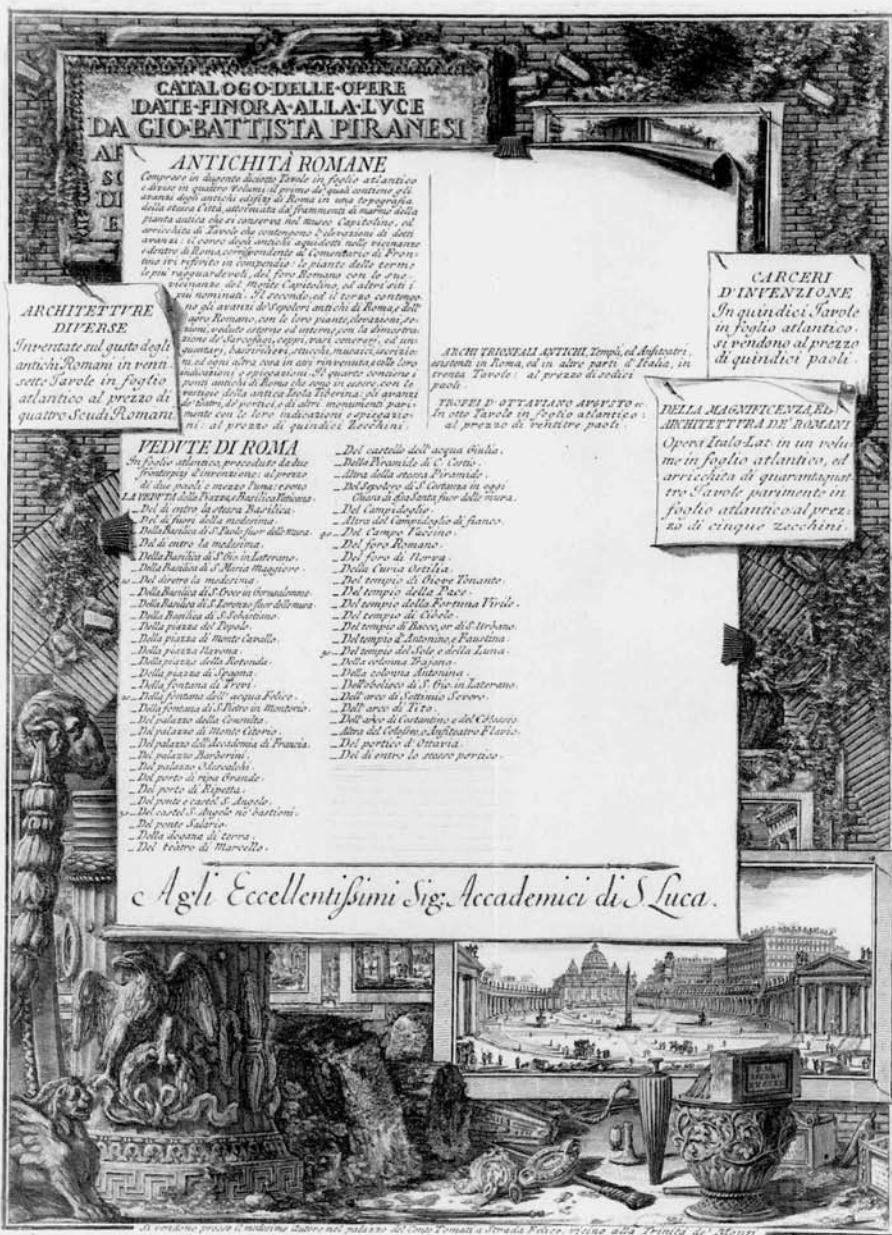 CATALOGO·DELLE·OPERE
DATE·FINORA·ALLA·LVCE
DA GIO·BATTISTA PIRANESI
ANTICHITÀ ROMANE
Comprese in dugento diciotto Tavole in foglio atlantico
e divise in quattro Volumi: il primo de' quali contiene gli
avanzi degli antichi edifizj di Roma in una topografia
della stessa Città, attorniata da' frammenti di marmo della
pianta antica che si conserva nel museo Capitolino, ed
arricchita di Tavole che contengono l'elevazioni di detti
avanzi: il corso degli antichi aquidotti nelle vicinanze
e dentro di Roma, corrispondente al Comentario di Fron-
tino ivi riferito in compendio: le piante delle terme
le più ragguardevoli, del foro Romano con le sue
vicinanze del monte Capitolino, ed altri siti i
più nominati. Il secondo, ed il terzo contengo-
no gli avanzi de' Sepolcri antichi di Roma, e dell'
agro Romano, con le loro piante, elevazioni, se-
zioni, vedute esterne ed interne, con la dimostra-
zione de' Sarcofagi, ceppi, vasi cenerarj, ed un-
guentarj, bassirilievi, stucchi, musaici, iscrizio-
ni, ed ogni altra cosa in essi rinvenuta, colle loro
indicazioni e spiegazioni. Il quarto contiene i
ponti antichi di Roma che sono in essere, con le
vestigie della antica Isola Tiberina: gli avanzi
de' teatri, de' portici, e di altri monumenti pari-
mente con le loro indicazioni e spiegazio-
ni: al prezzo di quindici Zecchini.
ARCHI TRIONFALI ANTICHI, Tempii, ed Anfiteatri,
esistenti in Roma, ed in altre parti d'Italia, in
trenta Tavole: al prezzo di sedici
paoli.
TROFEI D'OTTAVIANO AVGVSTO
In otto Tavole in foglio atlantico:
al prezzo di ventitre paoli.
ARCHITETTVRE
DIVERSE
Inventate sul gusto degli
antichi Romani in venti-
sette Tavole in foglio
atlantico al prezzo di
quattro Scudi Romani
CARCERI
D'INVENZIONE
In quindici Tavole
in foglio atlantico.
si vendono al prezzo
di quindici paoli.
DELLA MAGNIFICENZA, ED
ARCHITETTVRA DE' ROMANI
Opera Italo-Lat: in un volu-
me in foglio atlantico, ed
arricchita di quarantaquat-
tro Tavole parimente in
foglio atlantico al prez-
zo di cinque zecchini.
VEDUTE DI ROMA
In foglio atlantico, precedute da due
frontespizj d'invenzione: al prezzo
di due paoli e mezzo l'una: e sono
LA VEDUTA della Piazza, e Basilica Vaticana.
_Del di entro la stessa Basilica.
_Del di fuori della medesima.
_Della Basilica di S. Paolo fuor delle mura.
_Del di entro la medesima.
_Della Basilica di S. Gio. in Laterano.
_Della Basilica di S. Maria Maggiore.
10_Del dietro la medesima.
_Della Basilica di S. Croce in Gerusalemme.
_Della Basilica di S. Lorenzo fuor delle mura.
_Della Basilica di S. Sebastiano.
_Della piazza del Popolo.
_Della piazza di Monte Cavallo.
_Della piazza Navona.
_Della piazza della Rotonda.
_Della piazza di Spagna.
_Della fontana di Trevi.
20_Della fontana dell'acqua Felice.
_Della fontana di S. Pietro in Montorio.
_Del palazzo della Consulta.
_Del palazzo di Monte Citorio.
_Del palazzo dell'Accademia di Francia.
_Del palazzo Barberini.
_Del palazzo Odescalchi.
_Del porto di ripa Grande.
_Del porto di Ripetta.
_Del ponte e castel S. Angelo.
30_Del castel S. Angelo ne' bastioni.
_Del ponte Salario.
_Della dogana di terra.
_Del teatro di Marcello.
_Del castello dell'acqua Giulia.
_Della Piramide di C. Cestio.
_Altra della stessa Piramide.
_Del Sepolcro di S. Costanza in oggi
Chiesa di dta Santa fuor delle mura.
_Del Campidoglio.
_Altra del Campidoglio di fianco.
40_Del Campo Vaccino.
_Del foro Romano.
_Del foro di Nerva.
_Della Curia Ostilia.
_Del tempio di Giove Tonante.
_Del tempio della Pace.
_Del tempio della Fortuna Virile.
_Del tempio di Cibele.
_Del tempio di Bacco, or di S. Urbano.
_Del tempio d'Antonino, e Faustina.
50_Del tempio del Sole e della Luna.
_Della colonna Trajana.
_Della colonna Antonina.
_Dell'obelisco di S. Gio. in Laterano.
_Dell'arco di Settimio Severo.
_Dell'arco di Tito.
_Dell'arco di Costantino e del Colosseo.
_Altra del Colosseo, o Anfiteatro Flavio.
_Del portico d'Ottavia.
_Del di entro lo stesso portico.
Agli Eccellentissimi Sig: Accademici di S. Luca.
Si vendono presso il medesimo Autore nel palazzo del Conte Tomati a Strada Felice, vicino alla Trinità de' Monti